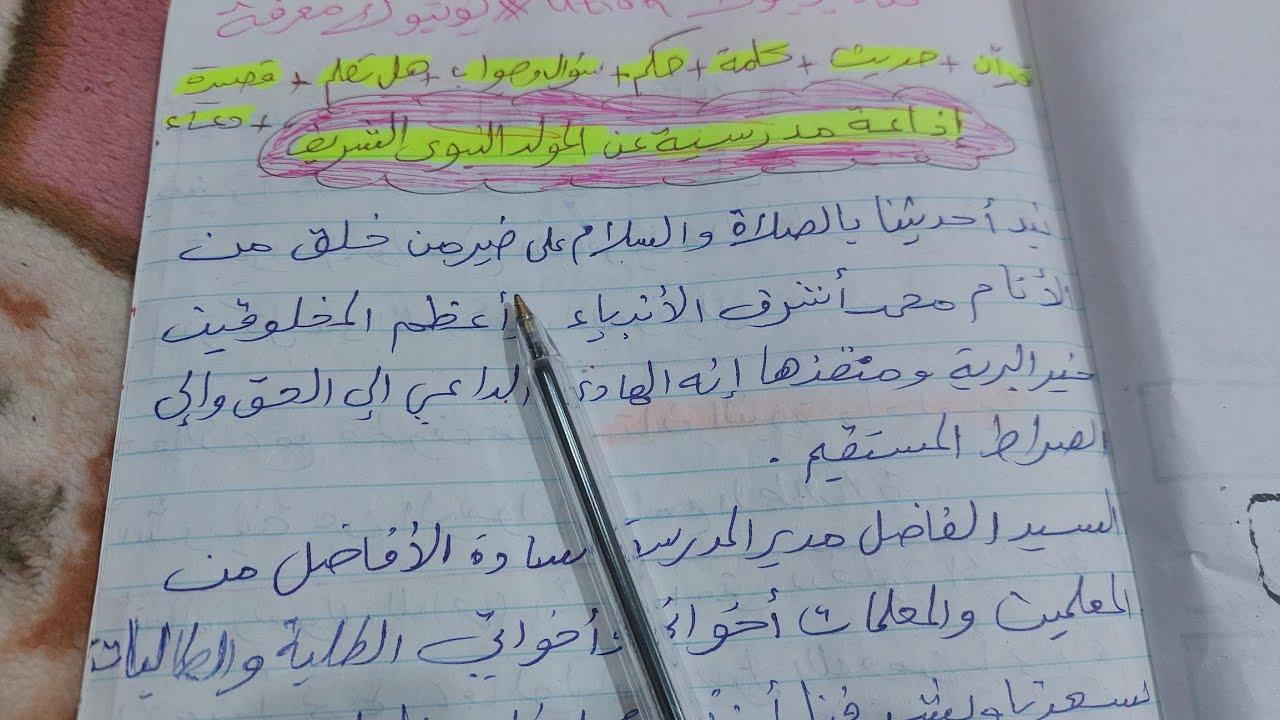 يوتيوك معرفة
قرآن + حديث + كلمة + حكم + سؤال وجواب + هل تعلم + قصيدة
+ دعاء
إذاعة مدرسية عن المولد النبوي الشريف
نبدأ حديثنا بالصلاة والسلام على خير من خلق من
الأنام محمد أشرف الأنبياء أعظم المخلوقين
خير البرية ومنقذها إنه الهادي الداعي إلى الحق وإلى
الصراط المستقيم .
السيد الفاضل مدير المدرسة السادة الأفاضل من
المعلمين والمعلمات أخواتي وأخواتي الطلبة والطالبات
يسعدنا ويشرفنا أن